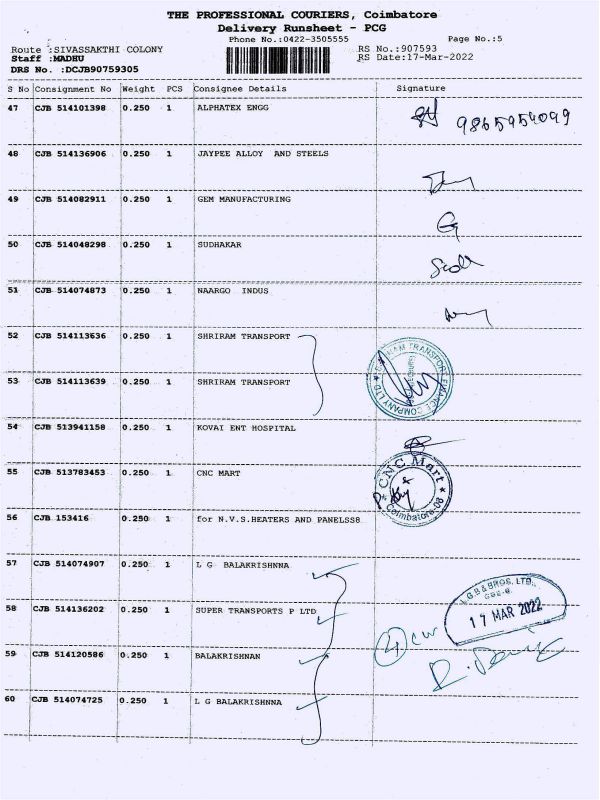 THE PROFESSIONAL COURIERS, Coimbatore
Delivery Runsheet - PCG
Phone No.:0422-3505555 Page No.:5
Route :SIVASSAKTHI COLONY RS No.:907593
Staff :MADHU RS Date:17-Mar-2022
DRS No. :DCJB90759305
S No Consignment No Weight PCS Consignee Details Signature
47 CJB 514101398 0.250 1 ALPHATEX ENGG 9865959099
48 CJB 514136906 0.250 1 JAYPEE ALLOY AND STEELS
49 CJB 514082911 0.250 1 GEM MANUFACTURING
50 CJB 514048298 0.250 1 SUDHAKAR
51 CJB 514074873 0.250 1 NAARGO INDUS
52 CJB 514113636 0.250 1 SHRIRAM TRANSPORT
53 CJB 514113639 0.250 1 SHRIRAM TRANSPORT
SHRIRAM TRANSPORT FINANCE COMPANY LTD
54 CJB 513941158 0.250 1 KOVAI ENT HOSPITAL
55 CJB 513783453 0.250 1 CNC MART
CNC Mart
Coimbatore-06
56 CJB 153416 0.250 1 for N.V.S.HEATERS AND PANELSS8
57 CJB 514074907 0.250 1 L G BALAKRISHNNA
L.G.B & BROS. LTD.,
17 MAR 2022
58 CJB 514136202 0.250 1 SUPER TRANSPORTS P LTD
4
59 CJB 514120586 0.250 1 BALAKRISHNAN
60 CJB 514074725 0.250 1 L G BALAKRISHNNA